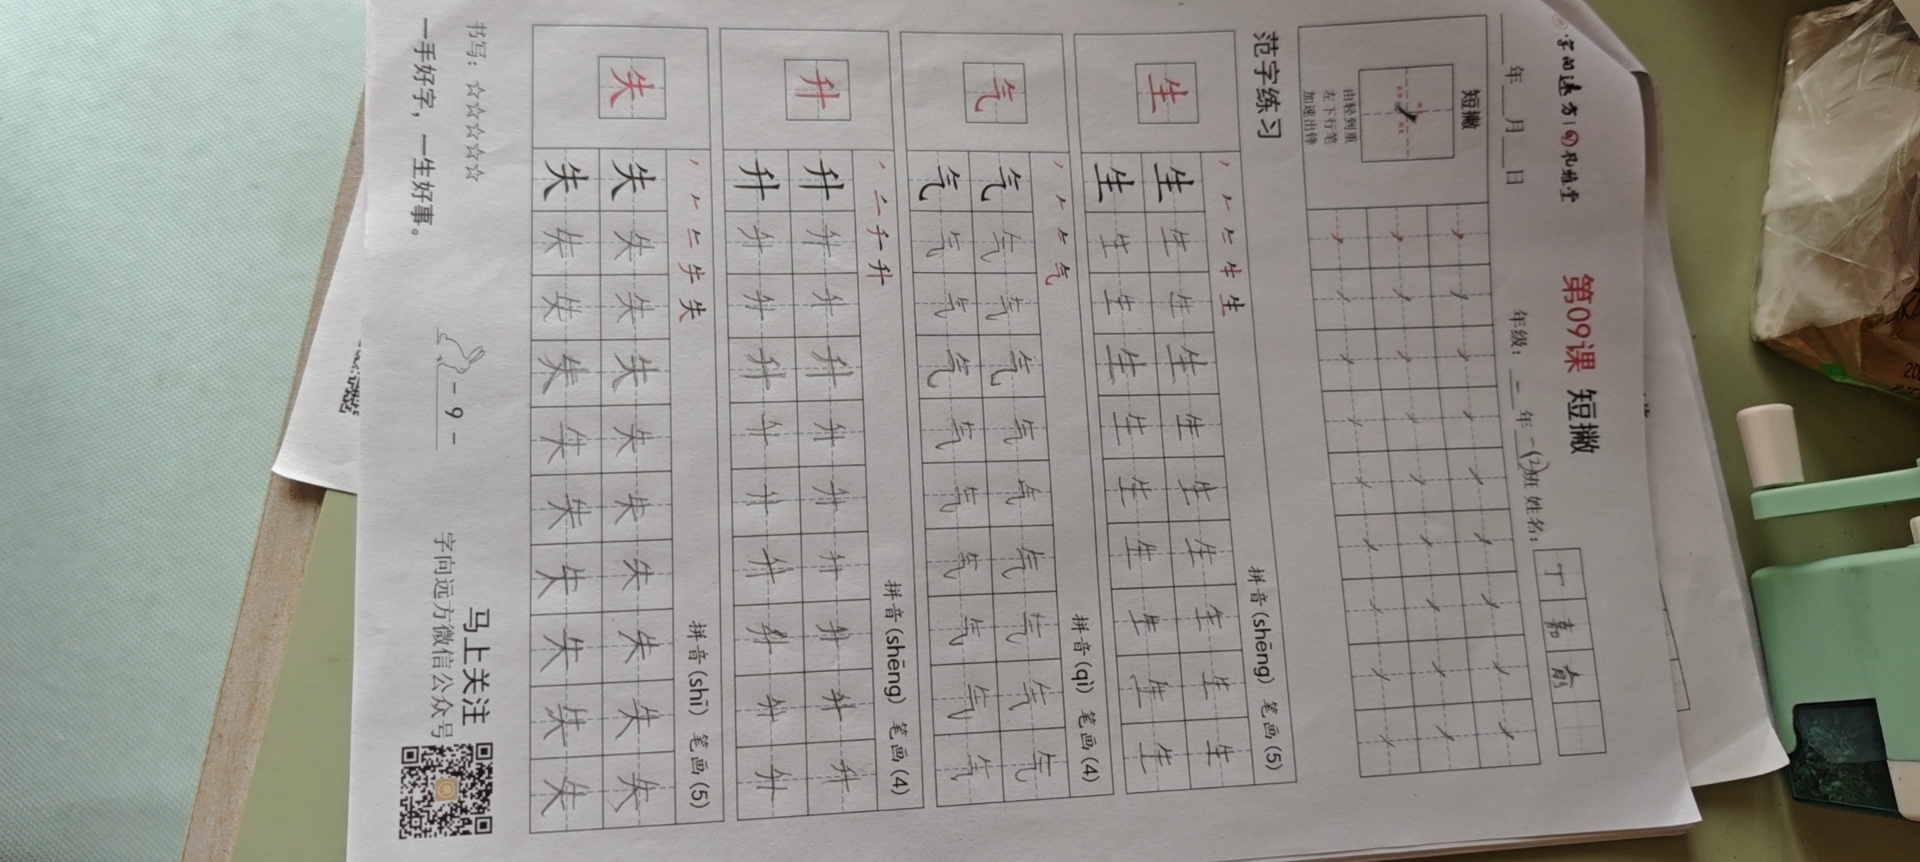 字向远方|孔雅堂 第09课 短撇
___年___月___日 年级：一年一(2)班 姓名：丁嘉俞
短撇
由轻到重
左下行笔
加速出锋
范字练习
拼音(shēng) 笔画(5)
生 生 生 生 生 生 生 生 生 生 生
生 生 生 生 生 生 生 生 生 生
拼音(qì) 笔画(4)
气 气 气 气 气 气 气 气 气 气 气
气 气 气 气 气 气 气 气 气 气
拼音(shēng) 笔画(4)
升 升 升 升 升 升 升 升 升 升 升
升 升 升 升 升 升 升 升 升 升
拼音(shī) 笔画(5)
失 失 失 失 失 失 失 失 失 失 失
失 失 失 失 失 失 失 失 失 失
书写：☆☆☆☆☆
一手好字，一生好事。
- 9 -
马上关注
字向远方微信公众号